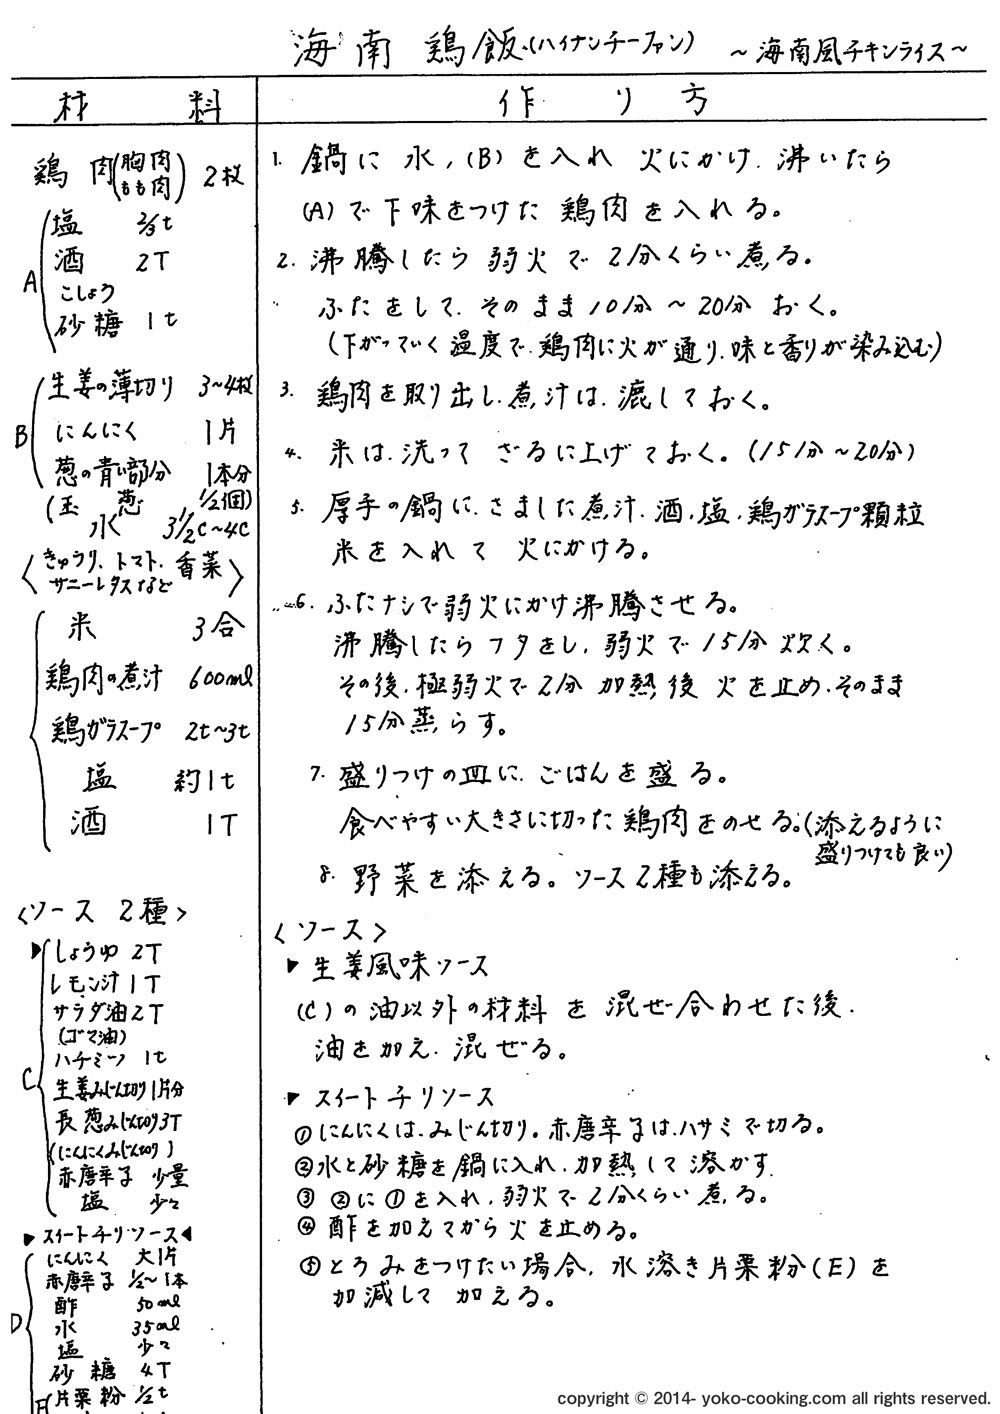 海南鶏飯(ハイナンチーファン) ～海南風チキンライス～
材料
鶏肉(胸肉 もも肉) 2枚
A
塩 2/3t
酒 2T
こしょう
砂糖 1t
B
生姜の薄切り 3~4枚
にんにく 1片
葱の青い部分 1本分
(玉葱 1/2個)
水 3 1/2C~4C
〈きゅうり、トマト、香菜
サニーレタスなど〉
米 3合
鶏肉の煮汁 600ml
鶏ガラスープ 2t~3t
塩 約1t
酒 1T
〈ソース 2種〉
C
▶しょうゆ 2T
レモン汁 1T
サラダ油 2T
(ゴマ油)
ハチミツ 1t
生姜みじん切り 1片分
長葱みじん切り 3T
(にんにくみじん切り)
赤唐辛子 少量
塩 少々
▶スイートチリソース◀
D
にんにく 大1片
赤唐辛子 1/2~1本
酢 50ml
水 35ml
塩 少々
砂糖 4T
E
片栗粉 1/2t
作り方
1. 鍋に水,(B)を入れ 火にかけ、沸いたら
(A)で下味をつけた鶏肉を入れる。
2. 沸騰したら弱火で2分くらい煮る。
ふたをして、そのまま10分～20分おく。
(下がっていく温度で、鶏肉に火が通り、味と香りが染み込む)
3. 鶏肉を取り出し、煮汁は、漉しておく。
4. 米は、洗ってざるに上げておく。(15分～20分)
5. 厚手の鍋に、さました煮汁、酒、塩、鶏ガラスープ顆粒
米を入れて火にかける。
6. ふたナシで弱火にかけ沸騰させる。
沸騰したらフタをし、弱火で15分炊く。
その後、極弱火で2分加熱後火を止め、そのまま
15分蒸らす。
7. 盛りつけの皿に、ごはんを盛る。
食べやすい大きさに切った鶏肉をのせる。(添えるように
盛りつけても良い)
8. 野菜を添える。ソース2種も添える。
〈ソース〉
▶生姜風味ソース
(C)の油以外の材料を混ぜ合わせた後、
油を加え、混ぜる。
▶スイートチリソース
①にんにくは、みじん切り。赤唐辛子は、ハサミで切る。
②水と砂糖を鍋に入れ、加熱して溶かす
③②に①を入れ、弱火で2分くらい煮る。
④酢を加えてから火を止める。
⑤とろみをつけたい場合、水溶き片栗粉(E)を
加減して加える。
copyright © 2014- yoko-cooking.com all rights reserved.